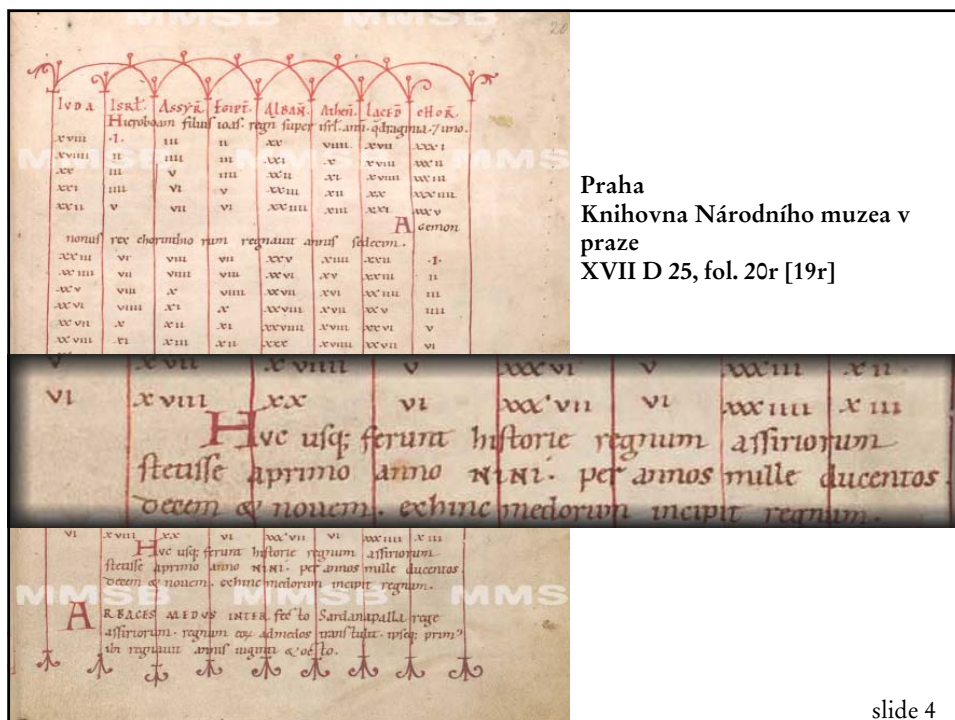 MMSB MMSB MMSB
20
IVDA ISRL̄. ASSYR̄. EGIPT̄. ALBAN̄. Athen̄. LACED̄ CHOR̄.
Hieroboam filius ioas. regn̄ super isrl̄. ann̄. q̄draginta. 7 uno.
xviii ·I· iii ii xx viiii xvii xxxi
xviiii ii iiii iii xxi x xviii xxxii
xx iii v iiii xxii xi xviiii xxxiii
xxi iiii vi v xxiii xii xx xxxiiii
xxii v vii vi xxiiii xiii xxi xxxv
Agemon
nonus rex chorinthiorum regnauit annis sedecim.
xxiii vi viii vii xxv xiiii xxii ·I·
xxiiii vii viiii viii xxvi xv xxiii ii
xxv viii x viiii xxvii xvi xxiiii iii
xxvi viiii xi x xxviii xvii xxv iiii
xxvii x xii xi xxviiii xviii xxvi v
xxviii xi xiii xii xxx xviiii xxvii vi
v xvii xviiii v xxxvi v xxxiii xii
vi xviii xx vi xxxvii vi xxxiiii xiii
Hvc usq; ferunt historie regnum assiriorum
stetisse aprimo anno NINI. per annos mille ducentos.
decem & nouem. exhinc medorum incipit regnum.
vi xviii xx vi xxxvii vi xxxiiii xiii
Hvc usq; ferunt historie regnum assiriorum
stetisse aprimo anno NINI. per annos mille ducentos.
decem & nouem. exhinc medorum incipit regnum.
MMSB MMSB MMSB
ARBACES MEDVS INTERfecto Sardanapallo rege
assiriorum. regnum eoꝝ admedos transtulit. ipseq; prim9
ibi regnauit annis uiginti & octo.
Praha
Knihovna Národního muzea v
praze
XVII D 25, fol. 20r [19r]
slide 4